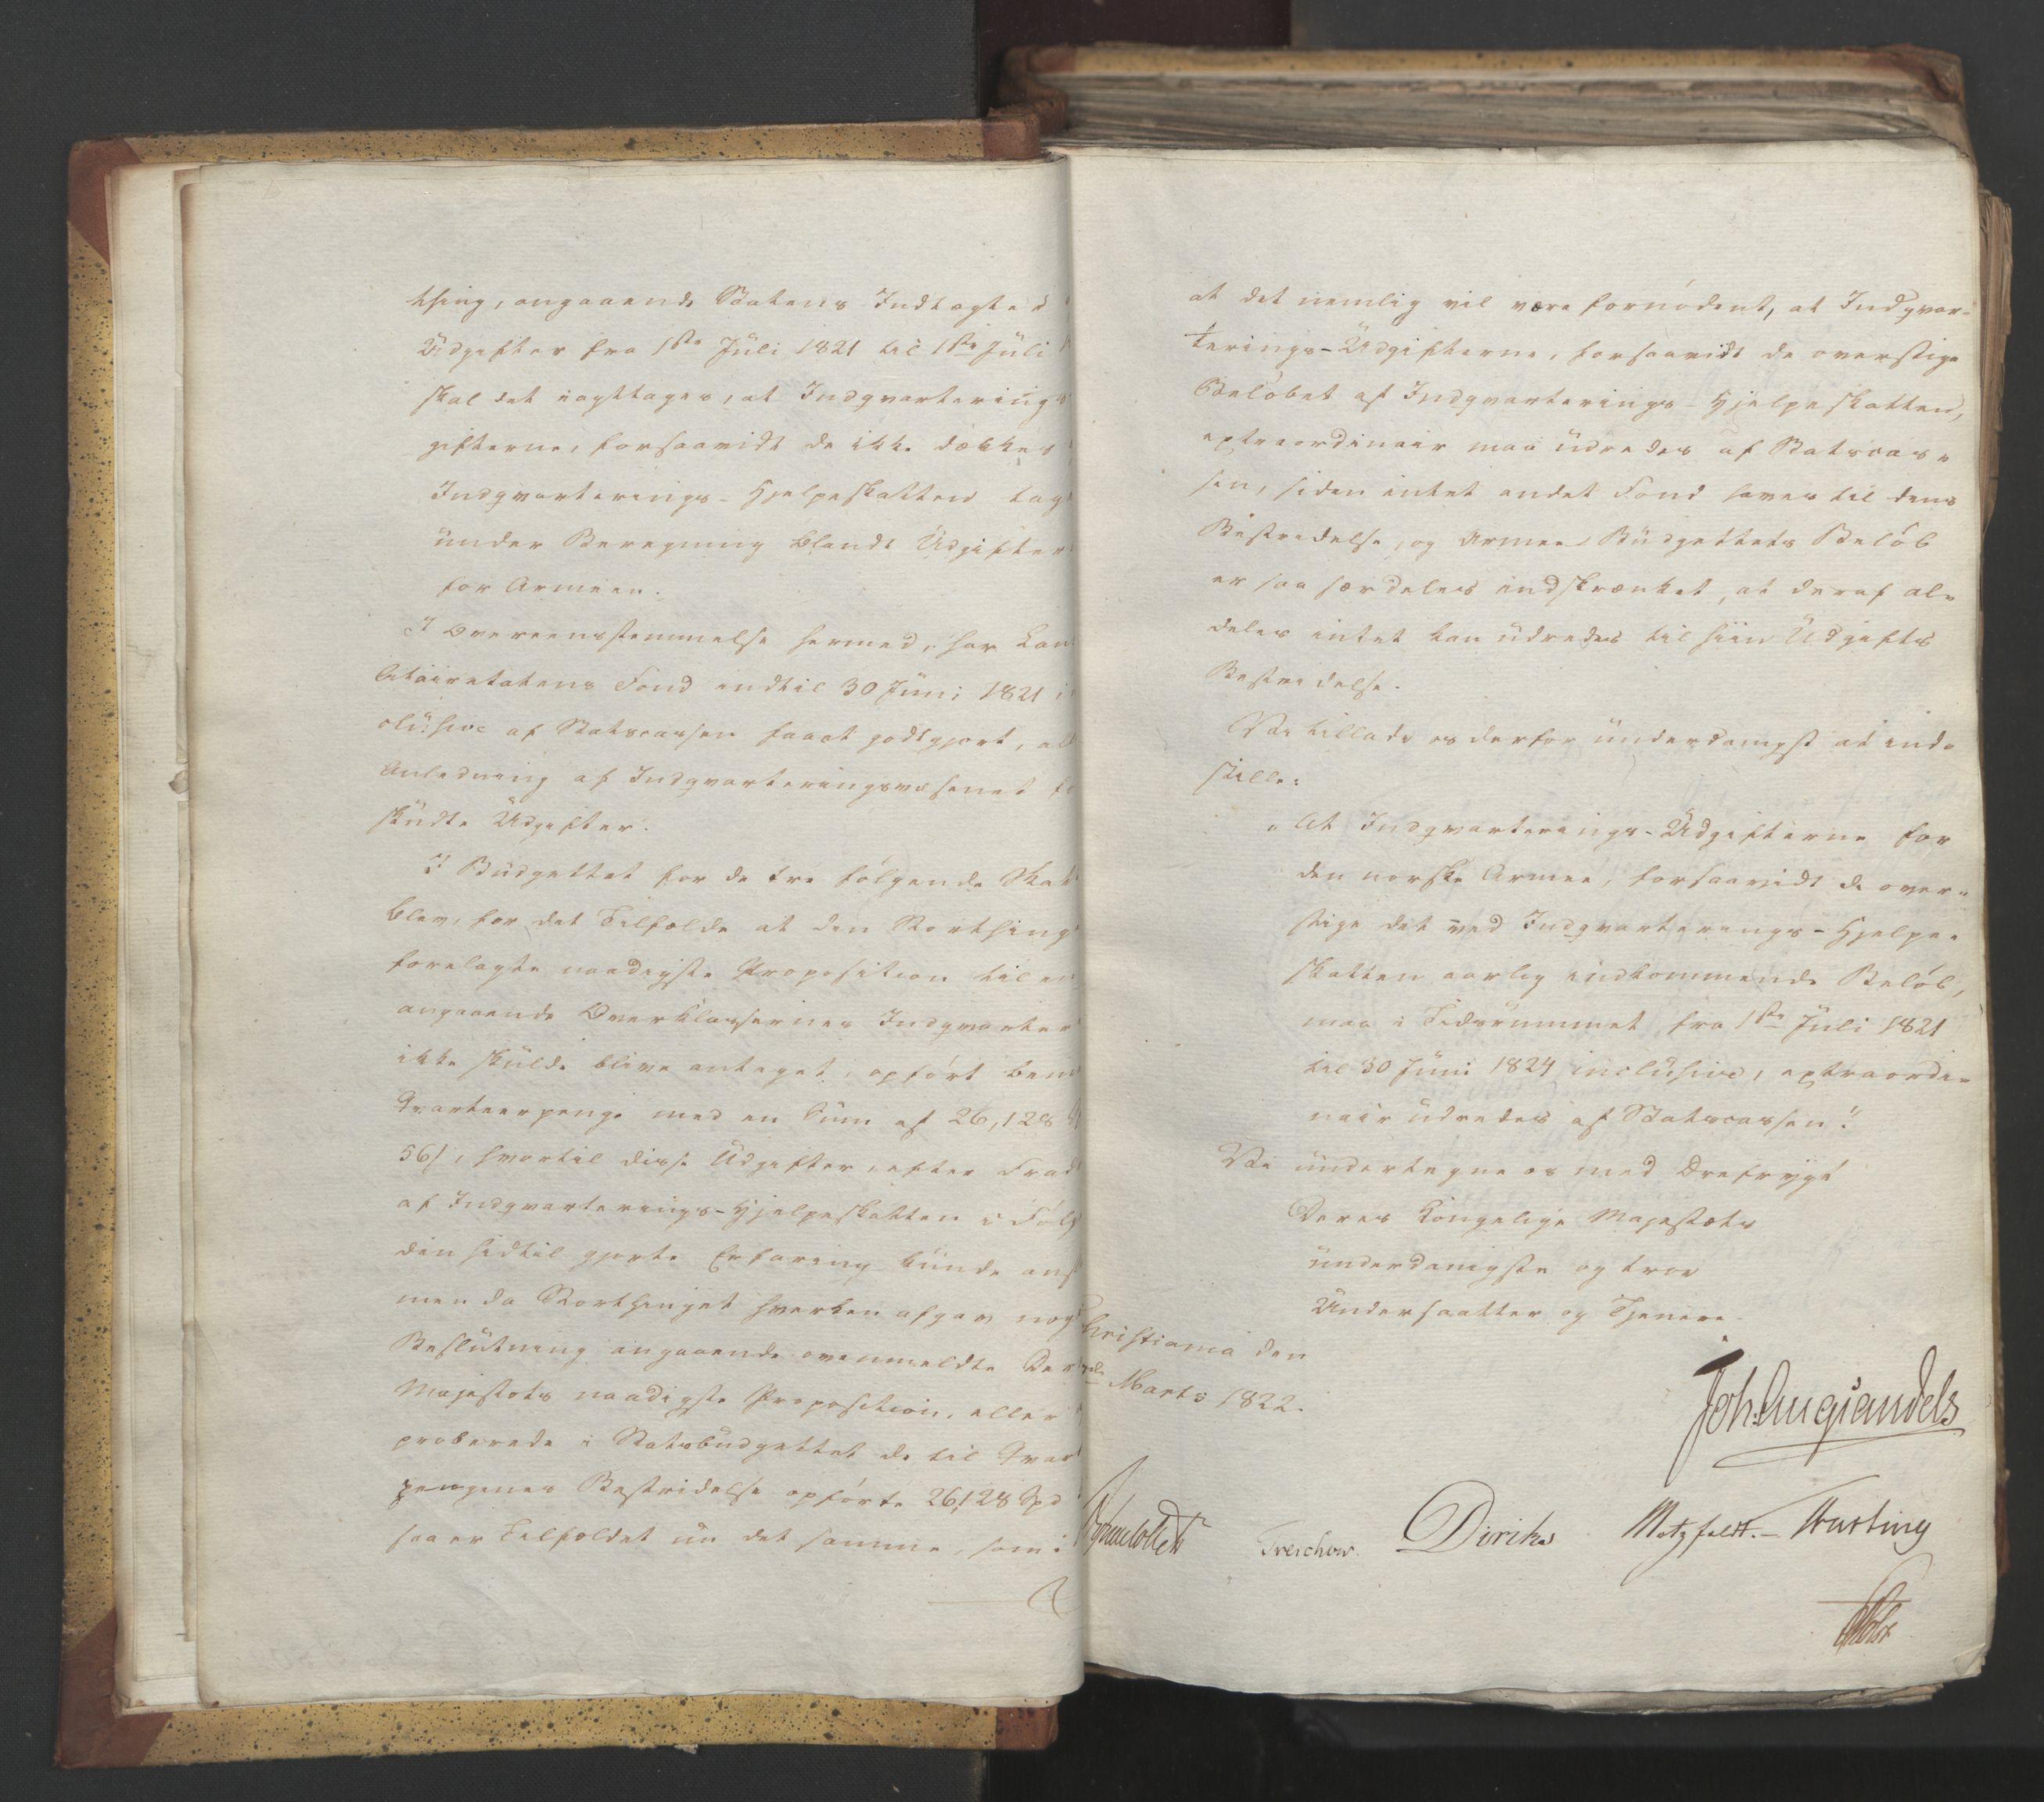 thing, angaaende Statens Indtægter
Udgifter fra 1ste Juli 1821 til 1ste Juli
skal det iagttages, at Indqvarterings
gifterne, forsaavidt de ikke dækkes
Indqvarterings-Hjelpeskatten tag
under Beregning blandt Udgifter
for Armeen.
I Overeensstemmelse hermed, har
Etatens Fond indtil 30 Juni 1821 in
clusive af Statscassen faaet godtgjort, all
Anledning af Indqvarteringsvæsenet fo
skudte Udgifter.
I Budgettet for de tre følgende Skat
blev, for det Tilfælde at den Storthing
forelagte naadigste Proposition til en
angaaende Overklassernes Indqvarter
ikke skulde blive antaget, opført
Qvarteerpenge med en Sum af 26,128
56ſ, hvortil disse Udgifter, efter Frad
af Indqvarterings-Hjelpeskatten i Følg
den hidtil gjorte Erfaring kunde ans
men da Storthinget hverken afgav nog
Beslutning angaaende ovenmeldte Der
Majestæts naadigste Proposition, eller
proberede i Statsbudgettet de til Qvar
pengenes Bestridelse opførte 26,128 Spd
saa er Tilfældet nu det samme, som i
at det nemlig vil være fornødent, at Indqvar-
terings-Udgifterne, forsaavidt de overstige
Beløbet af Indqvarterings-Hjelpeskatten,
extraordinair maa udredes af Statscas-
sen, siden intet andet Fond haves til dens
Bestridelse, og Armee Budgettets Beløb
er saa særdeles indskrænket, at deraf al-
deles intet kan udredes til hiin Udgifts
Bestridelse.
Vi tillade os derfor underdanigst at ind-
stille:
"At Indqvarterings-Udgifterne for
den norske Armee, forsaavidt de over-
stige det ved Indqvarterings-Hjelpe-
skatten aarlig indkommende Beløb,
maa i Tidsrummet fra 1ste Juli 1821
til 30 Juni 1824 inclusive, extraordi-
nair udredes af Statscassen."
Vi undertegne os med Ærefrygt
Deres Kongelige Majestæts
underdanigste og troe
Undersaatter og Tjenere.
Christiania den
Marts 1822.
Joh. Aug Sandels
Sommerhielm Treschow. Diriks Motzfeldt.- Krafting
Holst